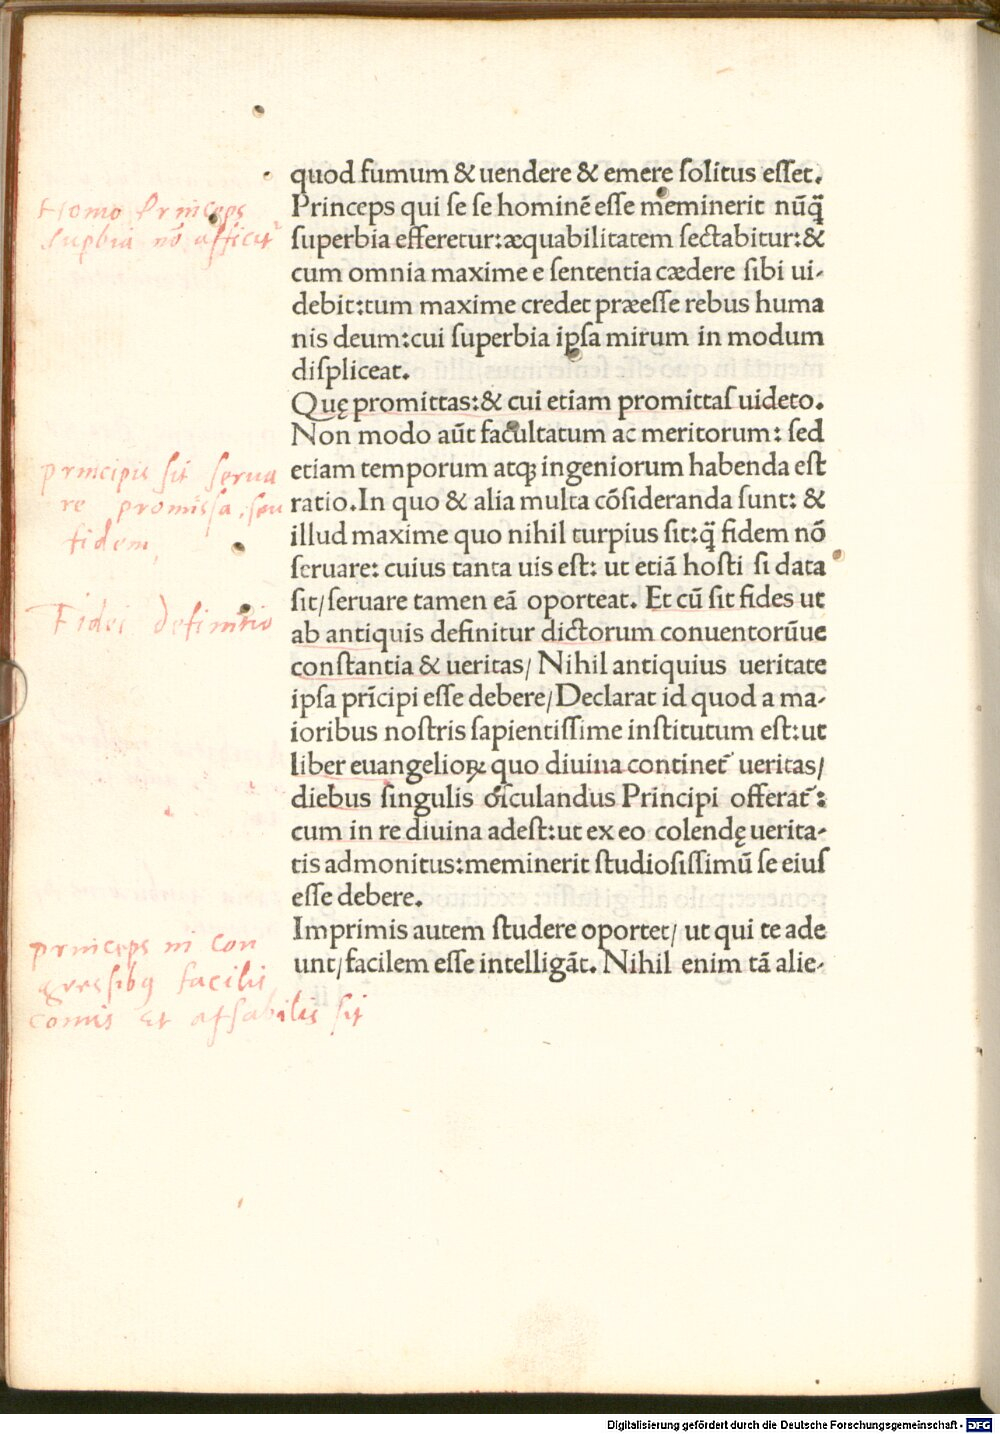 quod fumum & uendere & emere ſolitus eſſet.
Princeps qui ſe ſe hominē eſſe meminerit nūq̄
ſuperbia efferetur:æquabilitatem ſectabitur:&
cum omnia maxime e ſententia cædere ſibi ui-
debit:tum maxime credet præeſſe rebus huma
nis deum:cui ſuperbia ipſa mirum in modum
diſpliceat.
Quę promittas:& cui etiam promittaſ uideto.
Non modo aūt facultatum ac meritorum: ſed
etiam temporum atqꝫ ingeniorum habenda eſt
ratio.In quo & alia multa cōſideranda ſunt: &
illud maxime quo nihil turpius ſit:q̄ fidem nō
ſeruare: cuius tanta uis eſt: ut etiā hoſti ſi data
ſit/ſeruare tamen eā oporteat. Et cū ſit fides ut
ab antiquis definitur dictorum conuentorūue
conſtantia & ueritas/ Nihil antiquius ueritate
ipſa prīcipi eſſe debere/Declarat id quod a ma-
ioribus noſtris ſapientiſſime inſtitutum eſt:ut
liber euangelioꝝ quo diuina continet᷑ ueritas/
diebus ſingulis oſculandus Principi offerat᷑:
cum in re diuina adeſt:ut ex eo colendę uerita-
tis admonitus:meminerit ſtudioſiſſimū ſe eiuſ
eſſe debere.
Imprimis autem ſtudere oportet/ ut qui te ade
unt/facilem eſſe intelligāt. Nihil enim tā alie-
Homo Princeps
supbia nō afficit᷑
principis sit serua
re promissa, seu
fidem
Fidei definitio
princeps in con
gressibꝯ facilis
comis et affabilis sit
Digitalisierung gefördert durch die Deutsche Forschungsgemeinschaft - DFG